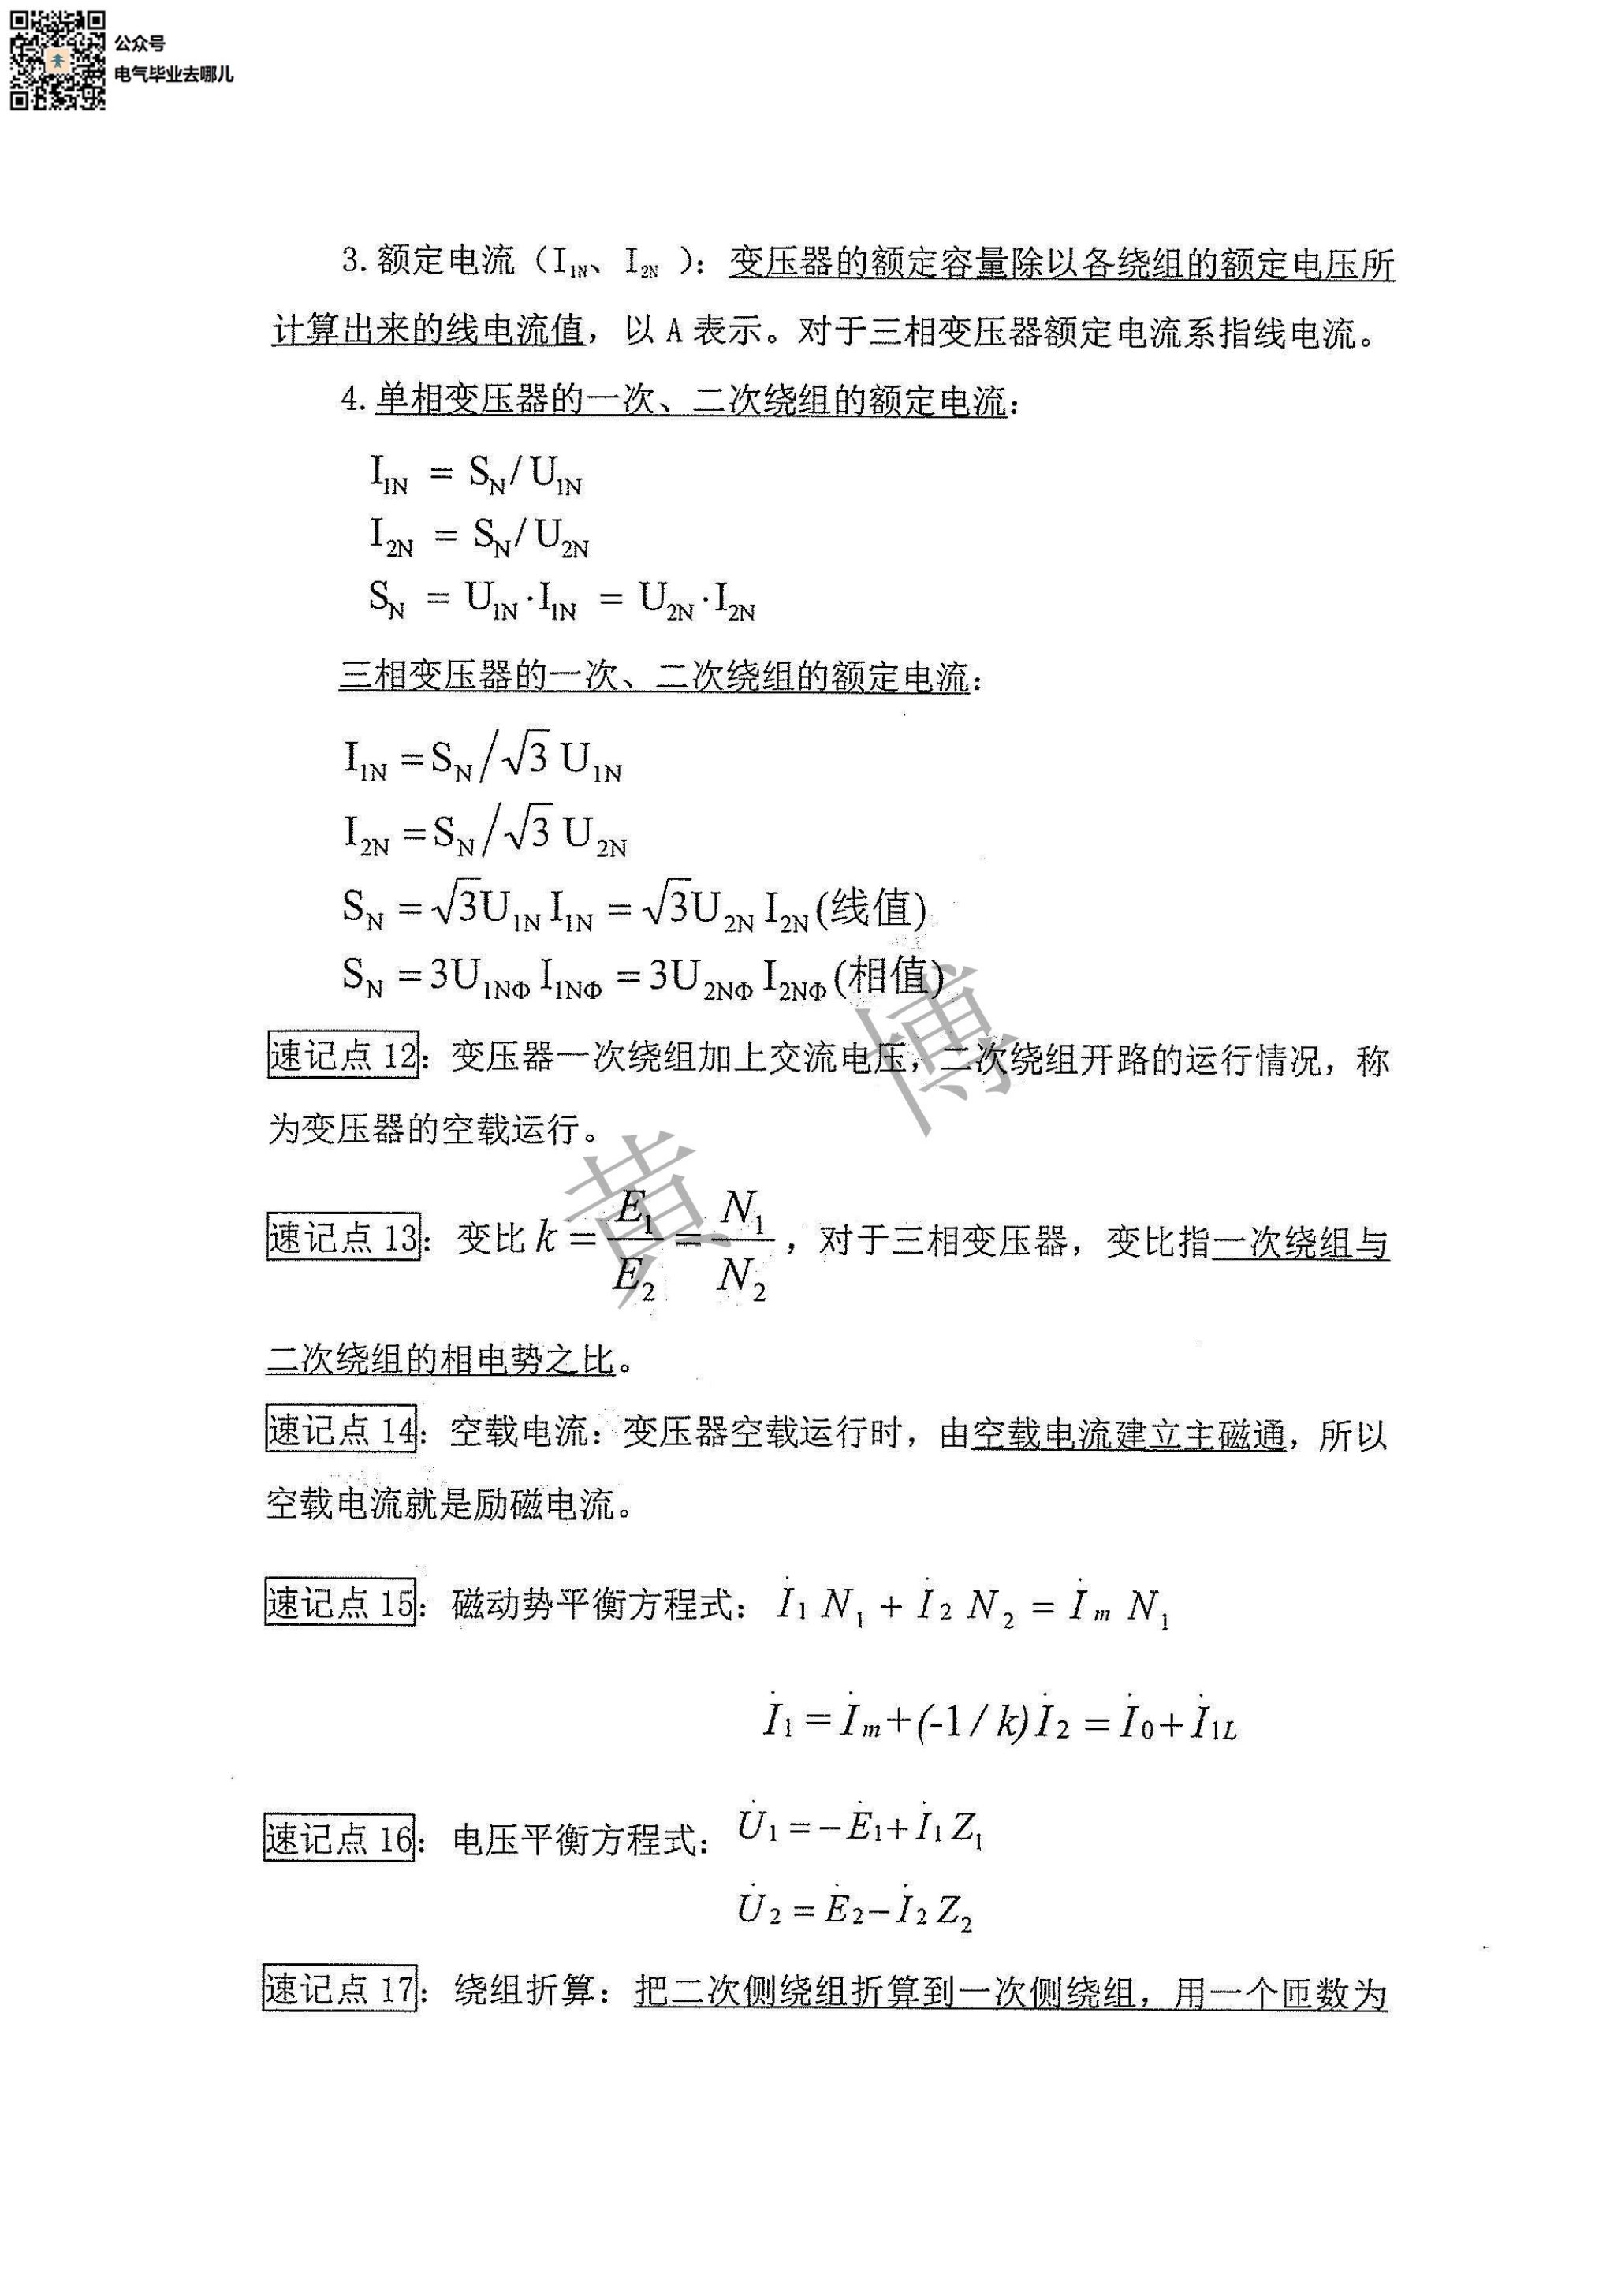 公众号
电气毕业去哪儿
3.额定电流（I₁N、I₂N ）：变压器的额定容量除以各绕组的额定电压所
计算出来的线电流值，以 A 表示。对于三相变压器额定电流系指线电流。
4.单相变压器的一次、二次绕组的额定电流：
I1N = SN/U1N
I2N = SN/U2N
SN = U1N·I1N = U2N·I2N
三相变压器的一次、二次绕组的额定电流：
I1N =SN/√3 U1N
I2N =SN/√3 U2N
SN =√3U1N I1N =√3U2N I2N(线值)
SN =3U1NΦ I1NΦ =3U2NΦ I2NΦ(相值)
速记点 12：变压器一次绕组加上交流电压，二次绕组开路的运行情况，称
为变压器的空载运行。
速记点 13：变比 k = E1/E2 = N1/N2，对于三相变压器，变比指一次绕组与
二次绕组的相电势之比。
速记点 14：空载电流：变压器空载运行时，由空载电流建立主磁通，所以
空载电流就是励磁电流。
速记点 15：磁动势平衡方程式：İ1 N1 + İ2 N2 = İm N1
İ1 = İm+(-1/k)İ2 = İ0+İ1L
速记点 16：电压平衡方程式：U̇1 = −Ė1+İ1 Z1
U̇2 = Ė2−İ2 Z2
速记点 17：绕组折算：把二次侧绕组折算到一次侧绕组，用一个匝数为
黄 博